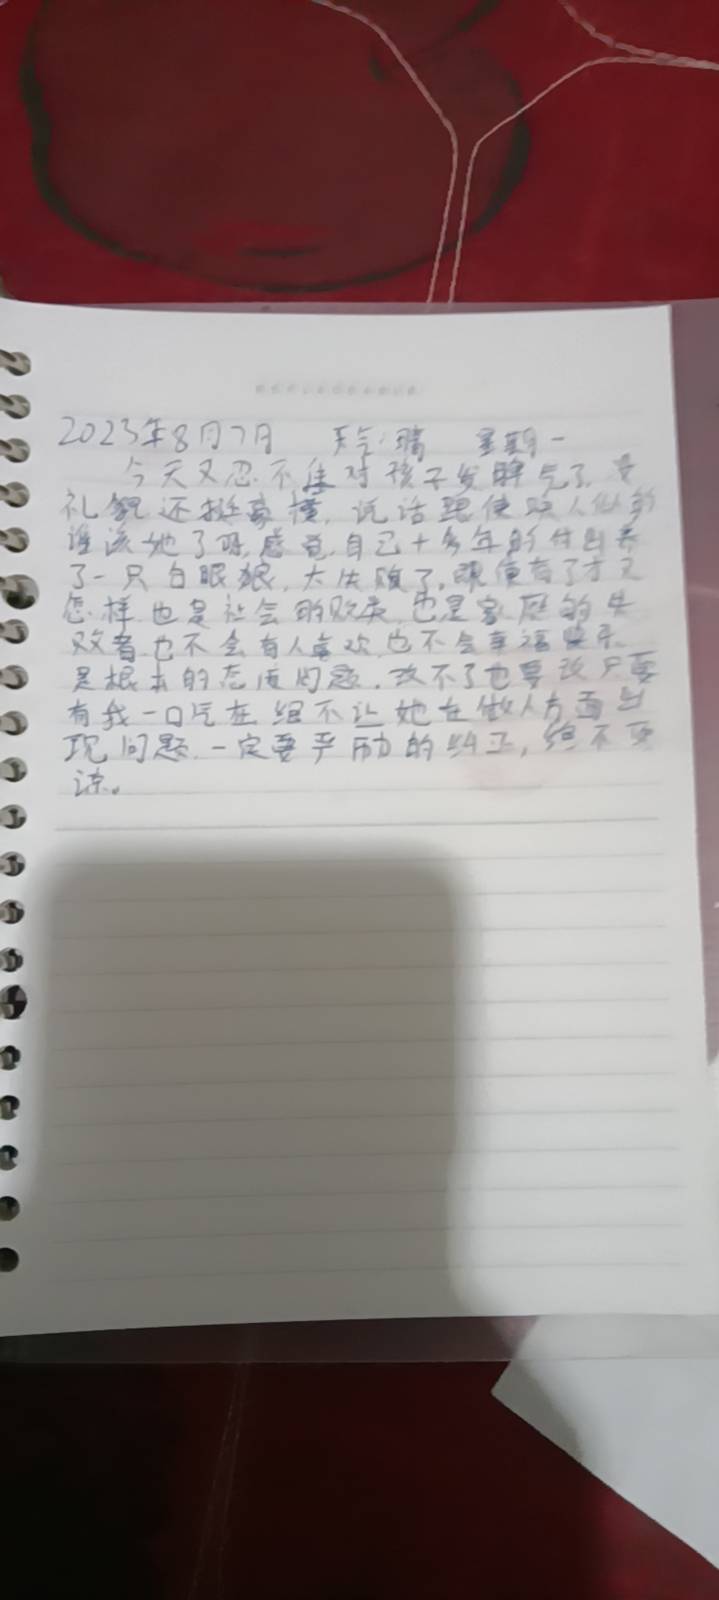 2023年8月7日 天气:晴 星期一
今天又忍不住对孩子发脾气了,没
礼貌还挺蛮横,说话跟使唤人似的
谁该她了呀,感觉自己十多年的付出养
了一只白眼狼,太失败了,即使有了才又
怎样,也是社会的败类,也是家庭的失
败者,也不会有人喜欢,也不会幸福快乐
是根本的态度问题,改不了也要改,只要
有我一口气在,绝不让她在做人方面出
现问题,一定要严厉的纠正,绝不
。